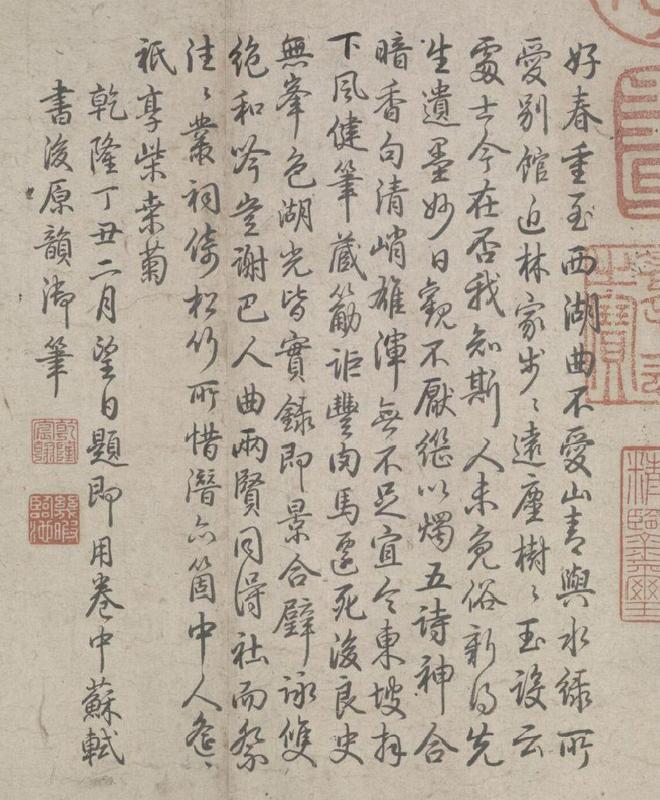 好春重至西湖曲不愛山青與水綠所
愛別館近林家步〻遠塵樹〻玉設云
處士今在否我知斯人未免俗新得先
生遺墨妙日觀不厭繼以燭五詩神合
暗香句清峭雄渾無不足宜令東坡拜
下風健筆藏筋詎豐肉馬遷死後良史
無峯色湖光皆實錄即景合璧詠雙
絕和吟豈謝巴人曲兩賢同得社而祭
往〻叢祠倚松竹所惜潛亦箇中人
祗享柴桑菊
乾隆丁丑二月望日題即用卷中蘇軾
書後原韻御筆
乾隆宸翰
幾暇臨池